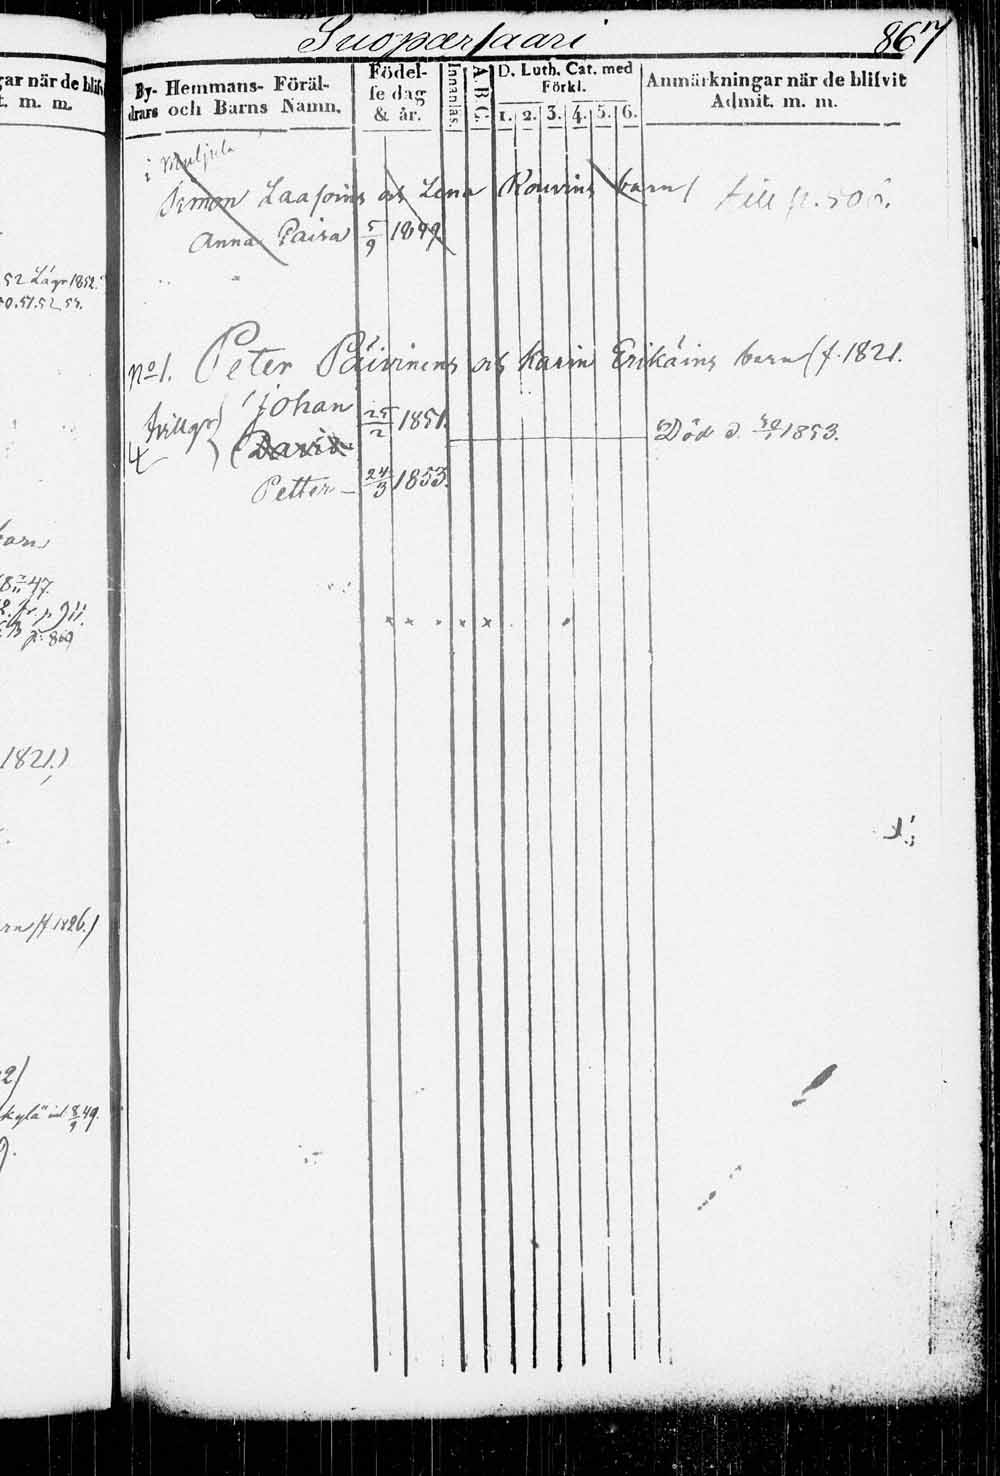 gar när de blifv
t. m. m.
52 Läsr 1852.
50.51.52 53.
barn
1821.)
rn (f. 1826.)
kylä" inl 8/9 49.
Suopærsaari 867
By- Hemmans- Föräl-
drars och Barns Namn.
Födel-
se dag
& år.
Innanläs.
A B C.
D. Luth. Cat. med
Förkl.
1. 2. 3. 4. 5. 6.
Anmärkningar när de blifvit
Admit. m. m.
i Muljula
Simon Laasoins och Lena Rouvins barn till p. 506.
Anna Caisa 5/9 1849
No 1. Peter Päivinens och Karin Erikäins barn (f. 1821.
tvillgr
Johan 25/2 1851.
David Död d. 30/1 1853.
Petter – 24/3 1853.